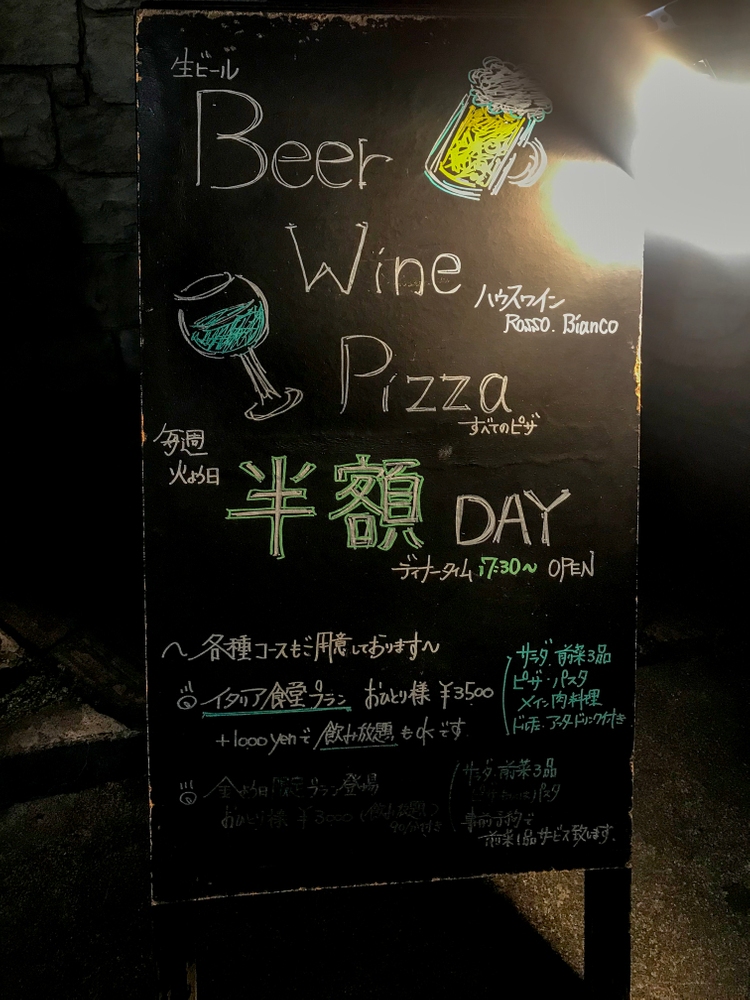 生ビール
Beer
Wine
ハウスワイン
Rosso. Bianco
Pizza
すべてのピザ
毎週
火よう日
半額 DAY
ディナータイム 17:30~ OPEN
~各種コースもご用意しております~
◎イタリア食堂プラン おひとり様 ¥3500
+1000yenで飲み放題もokです
サラダ・前菜3品
ピザ・パスタ
メイン肉料理
ドルチェ・アフタードリンク付き
◎金よう日限定プラン登場
おひとり様 ¥3000 (飲み放題)
90分付き
サラダ・前菜3品
ピザ パスタ
事前予約で
前菜1品サービス致します。